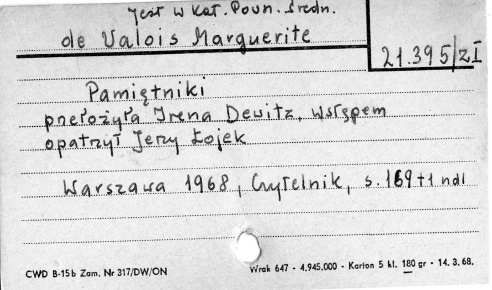 Jest w Kat. Pown. Średn.
de Valois Marguerite
21.395/zI
Pamiętniki
przełożyła Irena Dewitz, wstępem
opatrzył Jerzy Łojek
Warszawa 1968, Czytelnik, s. 169+1 ndl
CWD B-15b Zam. Nr 317/DW/ON
Wrak 647 - 4.945.000 - Karton 5 kl. 180 gr - 14. 3. 68.